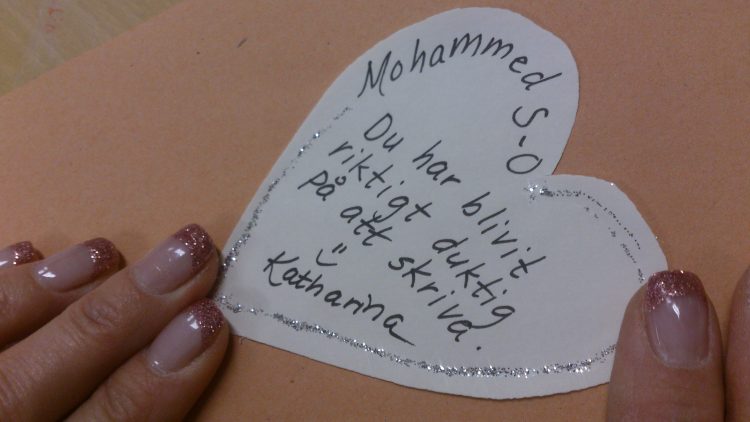 Mohammed S-O
Du har blivit
riktigt duktig
på att skriva.
Katharina